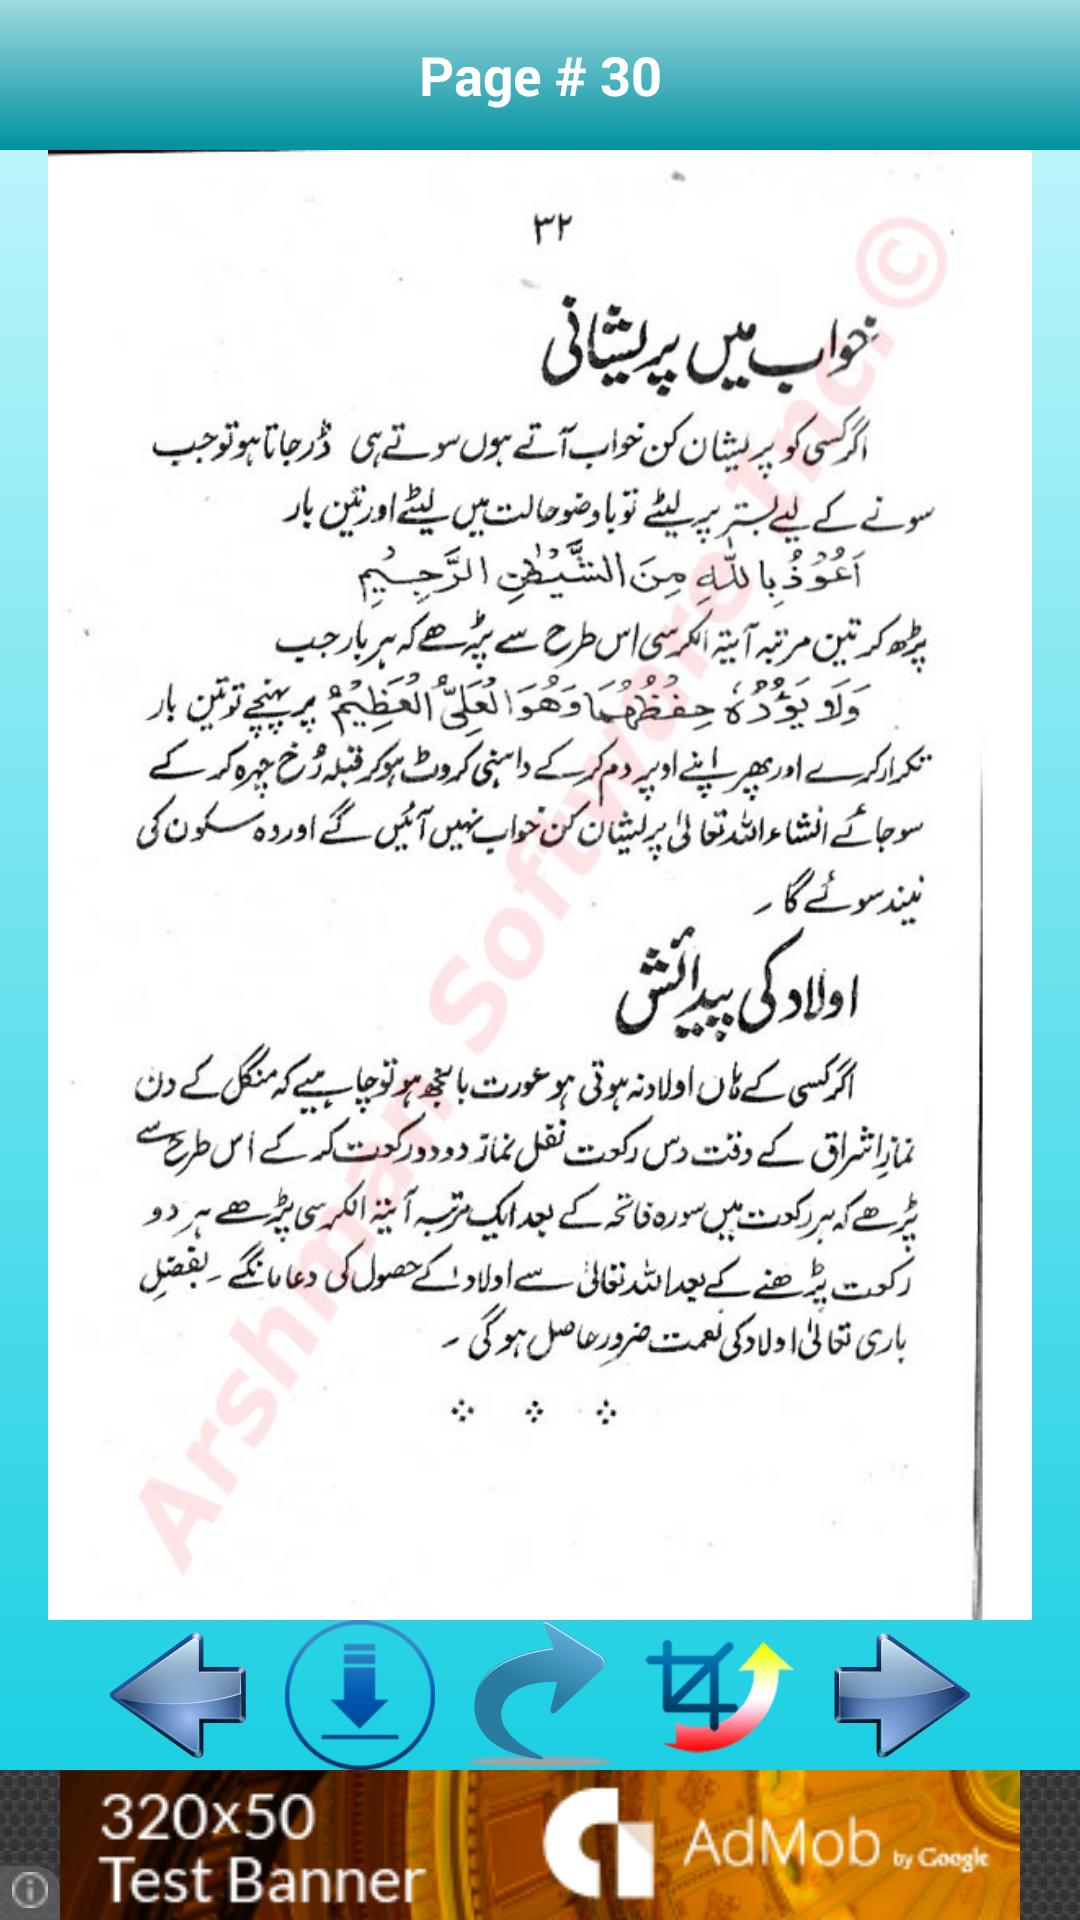 Page # 30
۳۲
خواب میں پریشانی
اگر کسی کو پریشان کن خواب آتے ہوں سوتے ہی ڈر جاتا ہو تو جب
سونے کے لیے بستر پر لیٹے تو باوضو حالت میں لیٹے اور تین بار
اَعُوْذُ بِاللّٰهِ مِنَ الشَّيْطٰنِ الرَّجِيْمِ
پڑھ کر تین مرتبہ آیۃ الکرسی اس طرح سے پڑھے کہ ہر بار جب
وَلَا يَؤُدُهٗ حِفْظُهُمَا وَهُوَ الْعَلِيُّ الْعَظِيْمُ پر پہنچے تو تین بار
تکرار کرے اور پھر اپنے اوپر دم کر کے داہنی کروٹ ہو کر قبلہ رُخ چہرہ کر کے
سو جائے انشاء اللہ تعالیٰ پریشان کن خواب نہیں آئیں گے اور وہ سکون کی
نیند سوئے گا۔
اولاد کی پیدائش
اگر کسی کے ہاں اولاد نہ ہوتی ہو عورت بانجھ ہو تو چاہیے کہ منگل کے دن
نمازِ اشراق کے وقت دس رکعت نفل نماز دو دو رکعت کر کے اس طرح سے
پڑھے کہ ہر رکعت میں سورہ فاتحہ کے بعد ایک مرتبہ آیۃ الکرسی پڑھے ہر دو
رکعت پڑھنے کے بعد اللہ تعالیٰ سے اولاد کے حصول کی دعا مانگے۔ بفضلِ
باری تعالیٰ اولاد کی نعمت ضرور حاصل ہو گی۔
Arshman Software Inc. ©
320x50
Test Banner
AdMob by Google